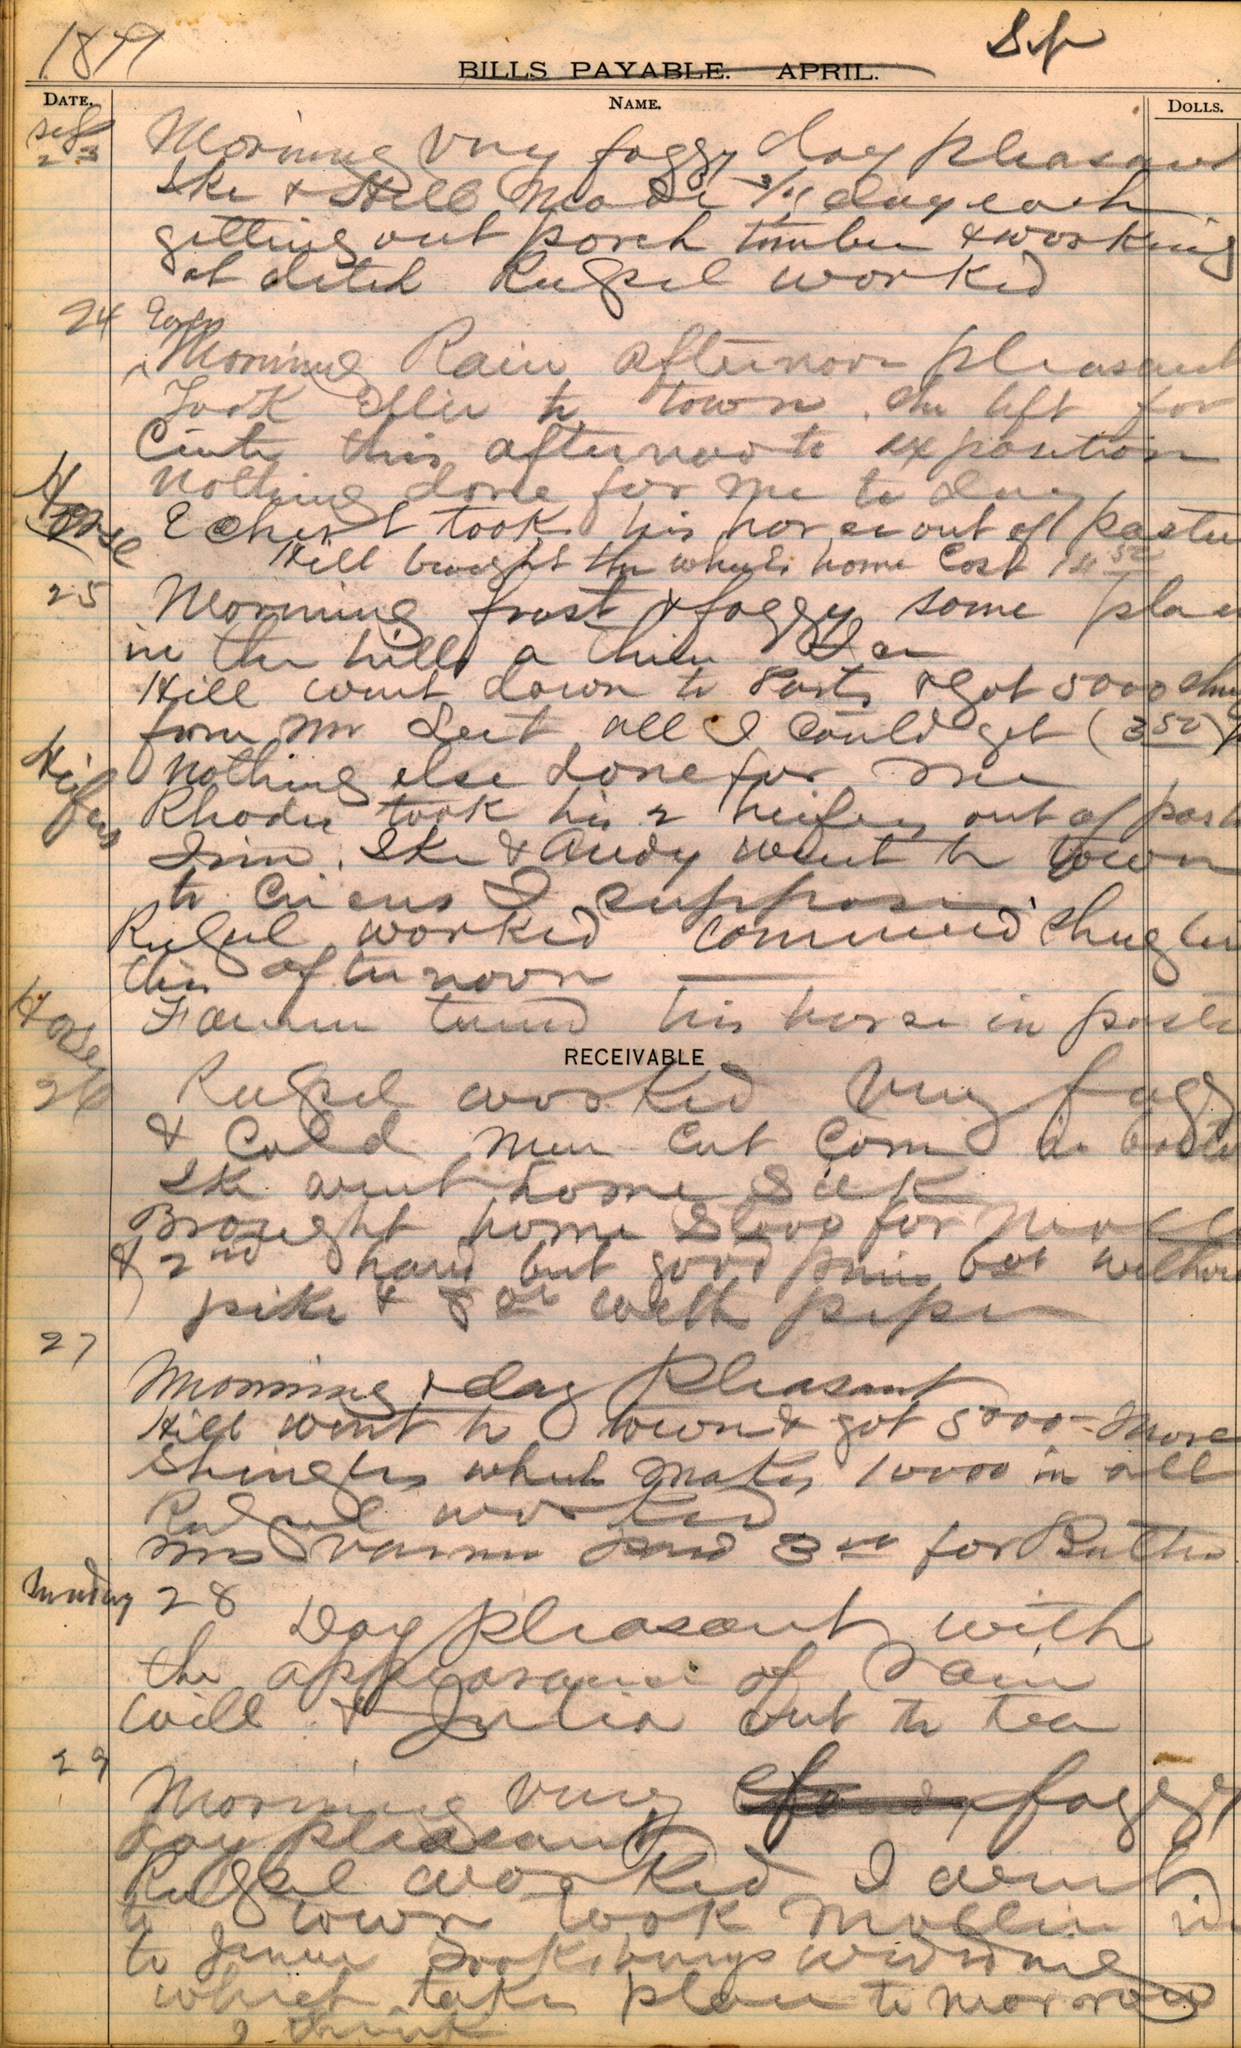 Sep
BILLS PAYABLE. APRIL.
DATE. NAME. DOLLS.
Sep 23 Morning very foggy day pleasant
Ike & Hill made 3/4 day each
getting out porch timber & working
at ditch Rugsel worked
24 Early
Morning Rain afternoon pleasant
Took Ellie to town. She left for
Cinti this afternoo to exposition
Nothing done for me to day
Horse Echert took his horse out of pastu
Hill brought the wheels home Cost
25 Morning frost & foggy some pla
in the hills a thin Ice
Hill went down to Ports & Got 5000 shing
from Mr all I could get (3 50)
Nothing else done for me
Heifers Rhodes took his 2 heifers out of past
Jim. Ike & Andy went to town
to Circus I suppose
Rugsel worked commenced shingling
this afternoon
Horse turned his horse in pastu
RECEIVABLE
26 Rugsel worked very fogg
& Cold men cut corn in
Ike went home Sick
Brought home
& 2nd hand but good but without
& with
27
Morning & day Pleasant
Hill went to town & got 5000 More
Shingles which makes 10000 in all
Rugsel worked
Mrs 3 for Butter
Sunday 28 Day pleasant with
the appearance of rain
Will & Julia out to tea
29
Morning very foggy
day pleasant
Rugsel worked I went
to town took Mollie in
to wedding
which takes place to morrow
I think